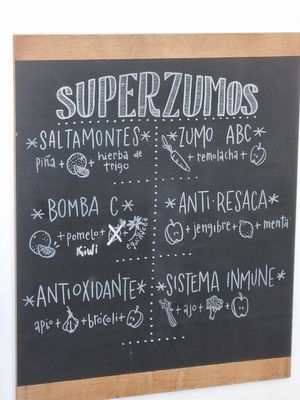 SUPERZUMOS
*SALTAMONTES*
piña + + hierba de
trigo
*ZUMO ABC*
+ remolacha +
*BOMBA C*
+ pomelo +
Kiwi
*ANTI RESACA*
+ jengibre + + menta
*ANTIOXIDANTE*
apio + + brócoli +
*SISTEMA INMUNE*
+ ajo + +